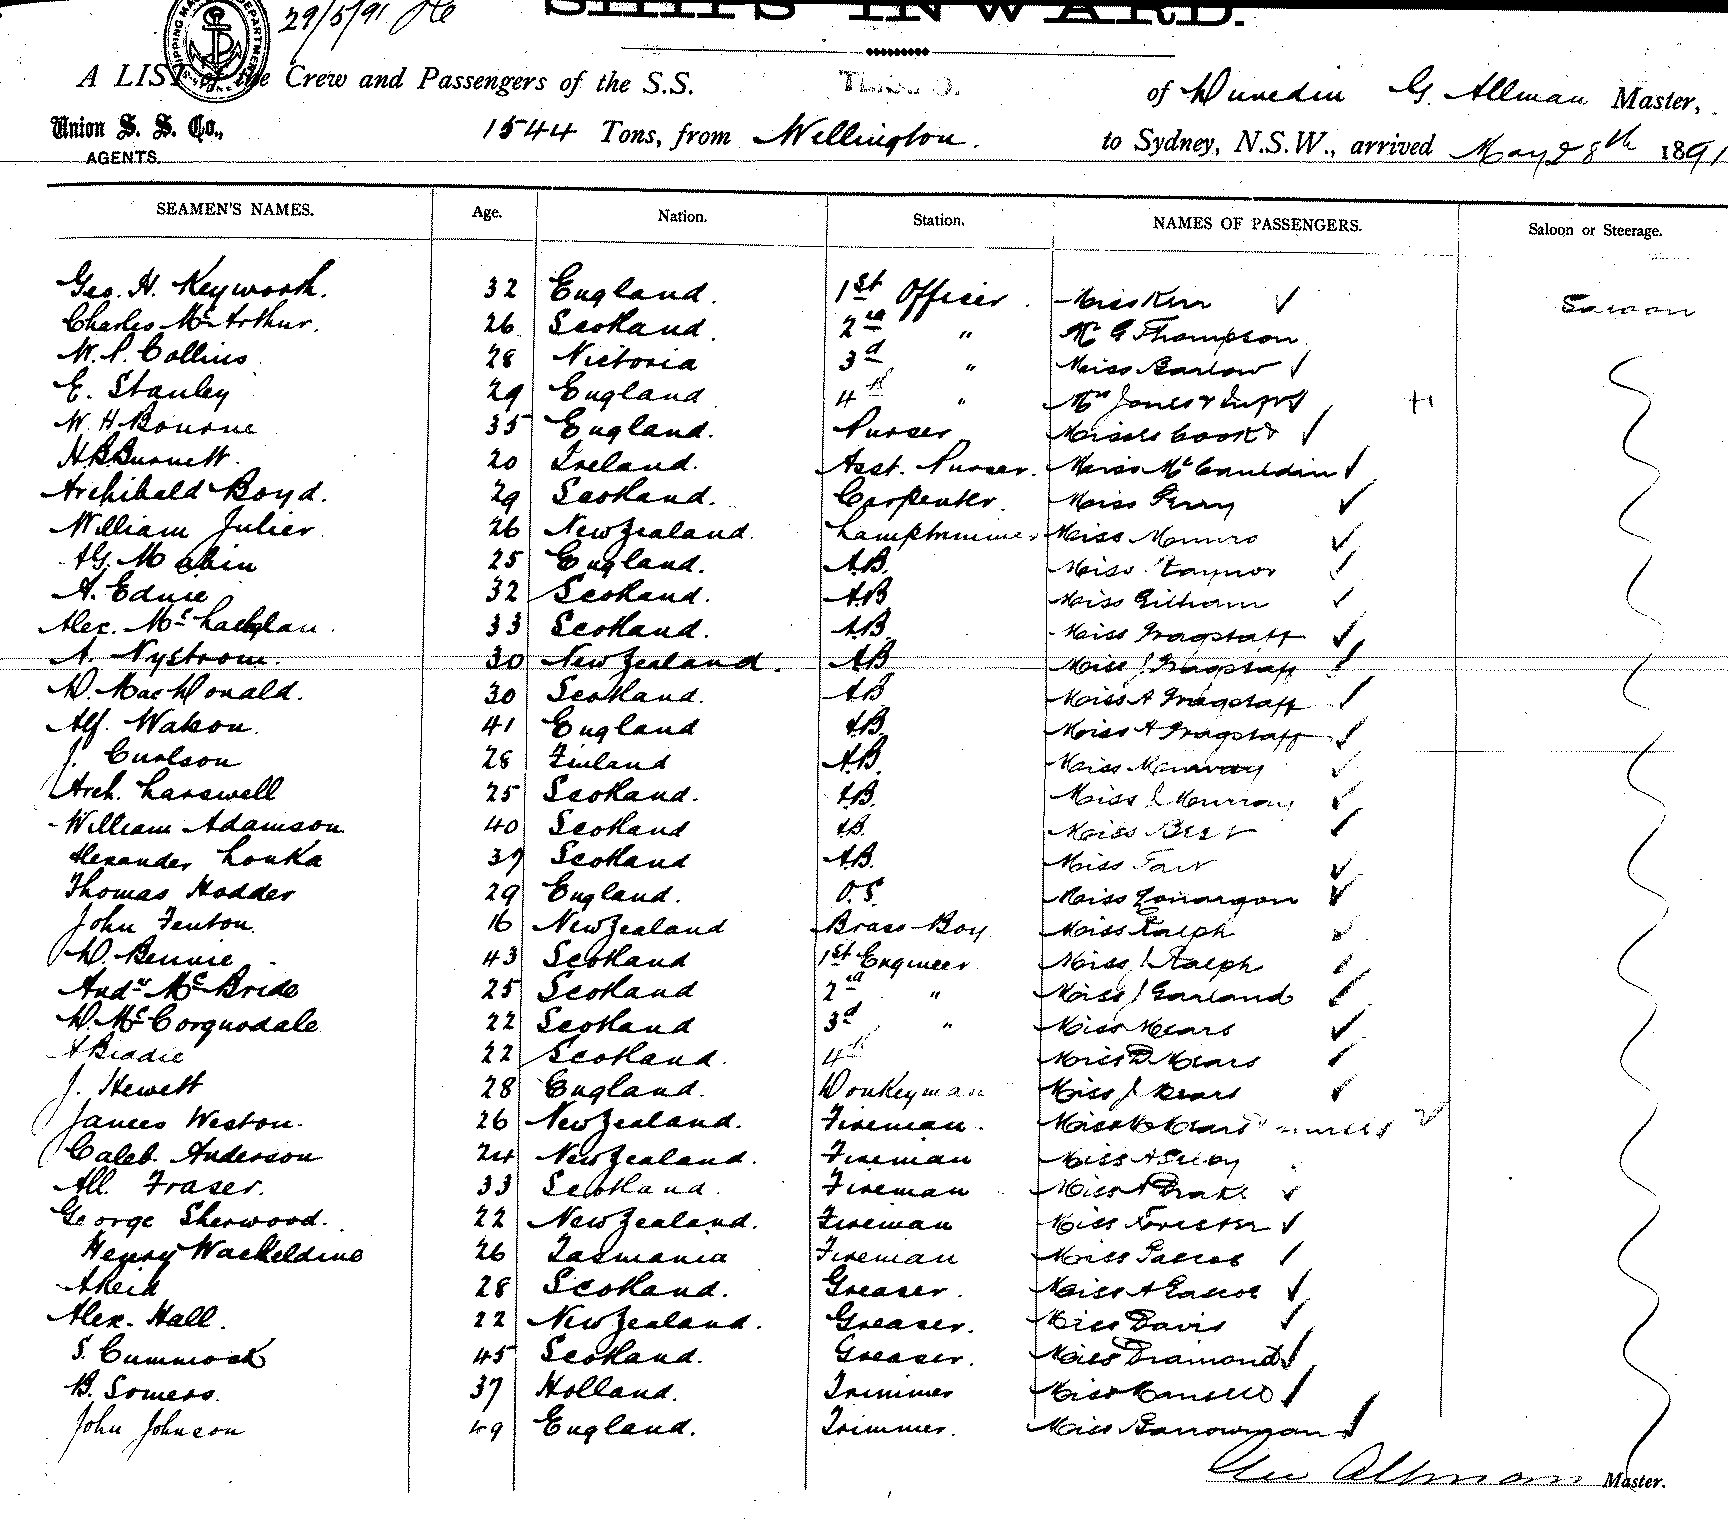 29/5/91
SHIPS INWARD.
A LIST of the Crew and Passengers of the S.S. of Dunedin G. Allman Master,
Union S. S. Co., 1544 Tons, from Wellington. to Sydney, N.S.W., arrived May 28th 1891
AGENTS.
SEAMEN'S NAMES. Age. Nation. Station. NAMES OF PASSENGERS. Saloon or Steerage.
Geo. H. Keyworth. 32 England. 1st Officer. Miss Kerr Saloon
Charles McArthur. 26 Scotland. 2nd " Mr G Thompson
Collins 28 Victoria 3d " Miss Barlow
E. Stanley 29 England 4th " Mrs Jones &
W. H. Bourne 35 England. Purser
H B Burnett. 20 Ireland. Asst. Purser. Miss
Archibald Boyd. 29 Scotland. Carpenter. Miss
William Julier 26 New Zealand. Lamptrimmer Miss Munro
25 England. A.B. Miss
A. 32 Scotland. A.B Miss Gilham
Alex. McLachlan. 33 Scotland. A.B Miss
A. Nystrom. 30 New Zealand. A.B Miss J
D. MacDonald. 30 Scotland. A.B Miss A
Alf. Watson. 41 England A.B. Miss A
J. Carlson 28 Finland A.B. Miss Murray
Arch. 25 Scotland. A.B. Miss J Murray
William Adamson 40 Scotland A.B. Miss
Alexander 37 Scotland A.B. Miss
Thomas Hodder 29 England. O.S. Miss
John Fenton. 16 New Zealand Brass Boy Miss Ralph
D. Rennie 43 Scotland 1st Engineer Miss J Ralph
Andw McBride 25 Scotland 2nd " Miss J Garland
D. McCorquodale 22 Scotland 3d " Miss Mears
A 22 Scotland. 4th Miss D. Mears
J. Hewett 28 England. Donkeyman Miss J Mears
James Weston. 26 New Zealand. Fireman. Miss Mears
Caleb Anderson 24 New Zealand. Fireman Miss
All. Fraser. 33 Scotland. Fireman Miss A Drake
George Sherwood. 22 New Zealand. Fireman Miss Forester
Henry Wackeldine 26 Tasmania Fireman Miss
A Reid 28 Scotland. Greaser. Miss A
Alex. Hall. 22 New Zealand. Greaser. Miss Davis
S. Cummock 45 Scotland. Greaser. Miss
B. Somers. 37 Holland. Trimmer Miss
John Johnson 49 England. Trimmer. Miss Barrowman
Geo Allman Master.